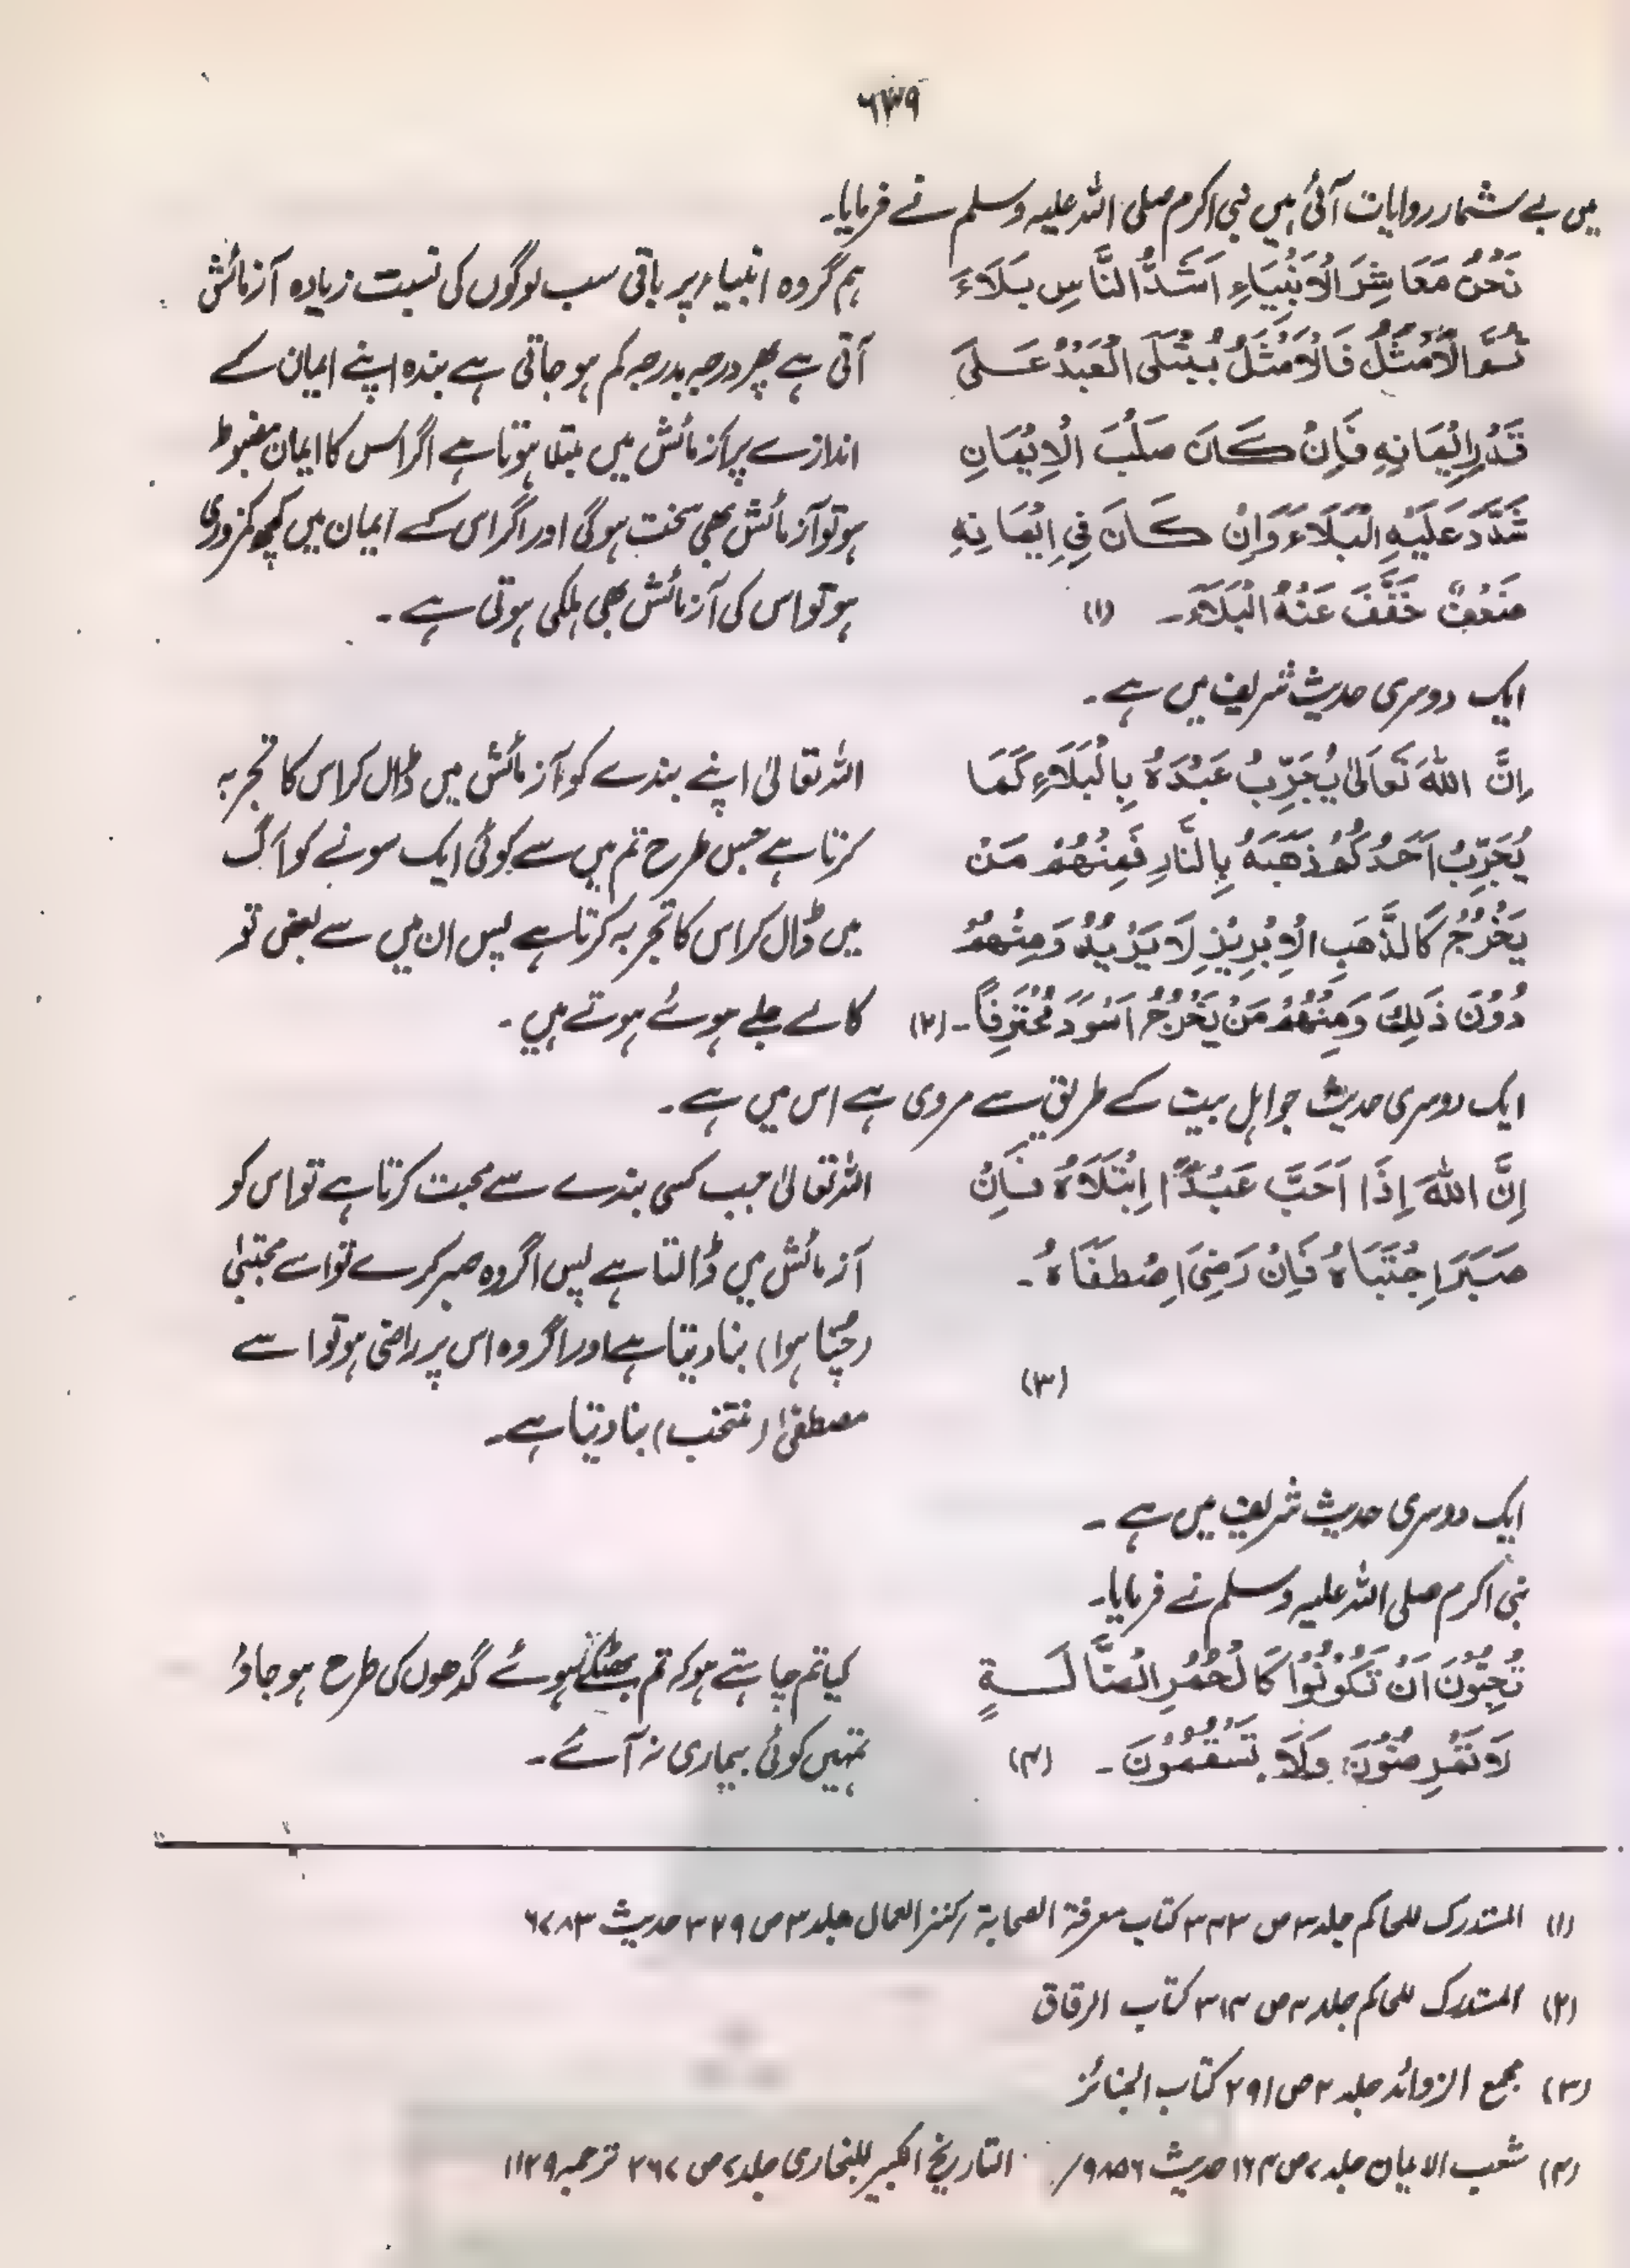 ۶۳۹
میں بے شمار روایات آئی ہیں نبی اکرم صلی اللہ علیہ وسلم نے فرمایا۔
نَحْنُ مَعَاشِرَ الْاَنْبِیَاءِ اَشَدُّ النَّاسِ بَلَاءً
ثُمَّ الْاَمْثَلُ فَالْاَمْثَلُ یُبْتَلَی الْعَبْدُ عَلٰی
قَدْرِ اِیْمَانِهٖ فَاِنْ كَانَ صَلْبَ الْاِیْمَانِ
شُدِّدَ عَلَیْهِ الْبَلَاءُ وَاِنْ كَانَ فِیْ اِیْمَانِهٖ
ضَعْفٌ خُفِّفَ عَنْهُ الْبَلَاءُ۔ (۱)
ہم گروہ انبیاء پر باقی سب لوگوں کی نسبت زیادہ آزمائش
آتی ہے پھر درجہ بدرجہ کم ہو جاتی ہے بندہ اپنے ایمان کے
اندازے پر آزمائش میں مبتلا ہوتا ہے اگر اس کا ایمان مضبوط
ہو تو آزمائش بھی سخت ہوگی اور اگر اس کے ایمان میں کچھ کمزوری
ہو تو اس کی آزمائش بھی ہلکی ہوتی ہے۔
ایک دوسری حدیث شریف میں ہے۔
اِنَّ اللهَ تَعَالٰی یُجَرِّبُ عَبْدَهٗ بِالْبَلَاءِ كَمَا
یُجَرِّبُ اَحَدُكُمْ ذَهَبَهٗ بِالنَّارِ فَمِنْهُمْ مَنْ
یَخْرُجُ كَالذَّهَبِ الْاِبْرِیْزِ لَا یَزِیْدُ وَمِنْهُمْ
دُوْنَ ذٰلِكَ وَمِنْهُمْ مَنْ یَخْرُجُ اَسْوَدَ مُحْتَرِقًا۔ (۲)
اللہ تعالیٰ اپنے بندے کو آزمائش میں ڈال کر اس کا تجربہ
کرتا ہے جس طرح تم میں سے کوئی ایک سونے کو آگ
میں ڈال کر اس کا تجربہ کرتا ہے پس ان میں سے بعض تو
کالے جلے ہوئے ہوتے ہیں۔
ایک دوسری حدیث جو اہل بیت کے طریق سے مروی ہے اس میں ہے۔
اِنَّ اللهَ اِذَا اَحَبَّ عَبْدًا اِبْتَلَاهُ فَاِنْ
صَبَرَ اجْتَبَاهُ فَاِنْ رَضِیَ اصْطَفَاهُ۔
(۳)
اللہ تعالیٰ جب کسی بندے سے محبت کرتا ہے تو اس کو
آزمائش میں ڈالتا ہے پس اگر وہ صبر کرے تو اسے مجتبیٰ
(چنا ہوا) بنا دیتا ہے اور اگر وہ اس پر راضی ہو تو اسے
مصطفیٰ (منتخب) بنا دیتا ہے۔
ایک دوسری حدیث شریف میں ہے۔
نبی اکرم صلی اللہ علیہ وسلم نے فرمایا۔
تُحِبُّوْنَ اَنْ تَكُوْنُوْا كَالْحُمُرِ الضَّالَّةِ
لَا تَمْرِضُوْنَ وَلَا تَسْقَمُوْنَ۔ (۴)
کیا تم چاہتے ہو کہ تم بھٹکے ہوئے گدھوں کی طرح ہو جاؤ
تمہیں کوئی بیماری نہ آئے۔
(۱) المستدرک للحاکم جلد ۳ ص ۳۴۳ کتاب معرفۃ الصحابۃ / کنز العمال جلد ۳ ص ۳۲۹ حدیث ۶۷۸۳
(۲) المستدرک للحاکم جلد ۴ ص ۳۱۴ کتاب الرقاق
(۳) مجمع الزوائد جلد ۲ ص ۲۹۱ کتاب الجنائز
(۴) شعب الایمان جلد ۷ ص ۱۶۴ حدیث ۹۸۵۶ / التاریخ الکبیر للبخاری جلد ۷ ص ۲۶۷ ترجمہ ۱۱۲۹